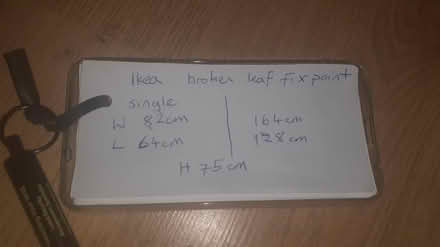 Ikea broken leaf fix point
single
W 82cm 164cm
L 64cm 128cm
H 75cm